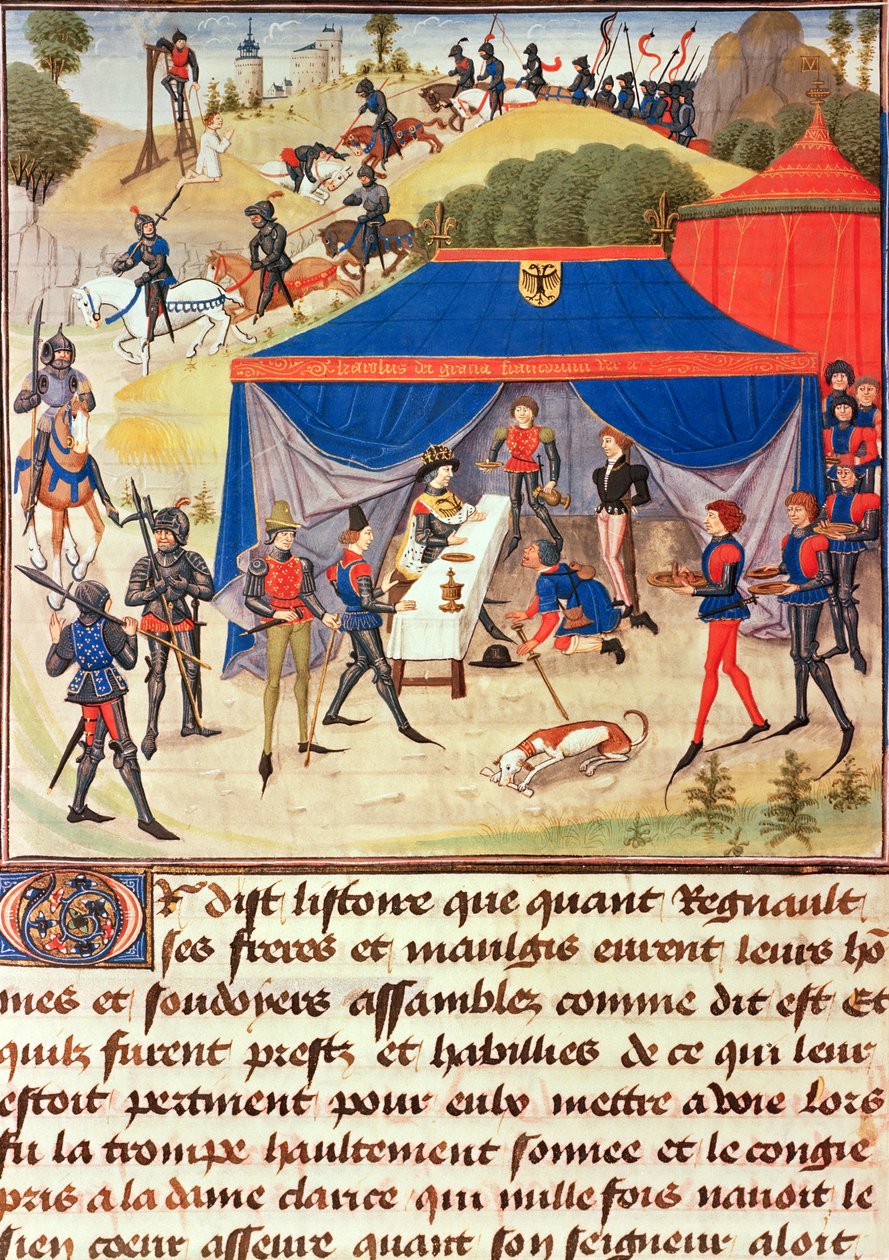 karolus dei gracia francorum rex
Or dist listoire que quant Regnault
ses freres et maulgis eurent leurs hō
mes et soudoyers assamblez comme dit est Et
quilz furent prestz et habillies de ce qui leur
estoit pertinent pour eulx mettre a voie Lors
fu la trompe haultement sonnee et le congie
pris a la dame clarice qui mille fois navoit le
sien coeur asseure quant son seigneur aloit